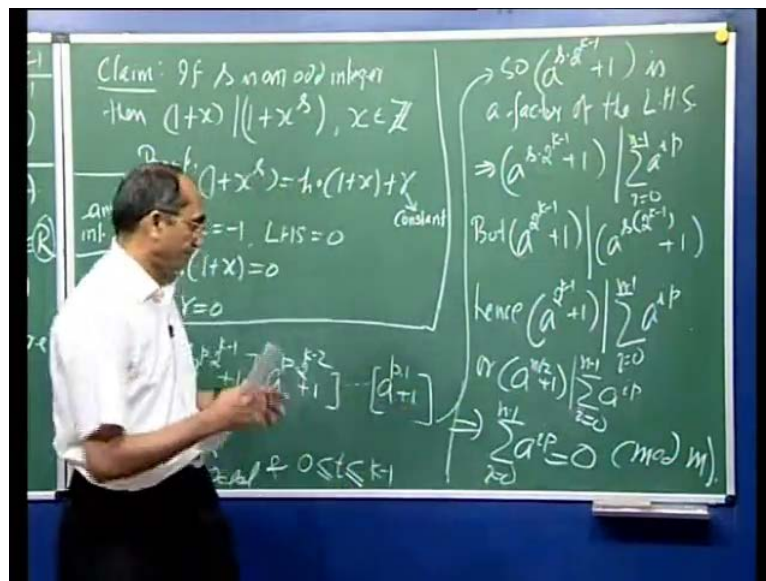 Claim: If s is an odd integer
then (1+x) | (1+x^s), x ∈ ℤ
(1+x^s) = h·(1+x)+r
Constant
=-1, LHS=0
·(1+x)=0
r=0
+1] ... [a^{p·1}+1]
& 0≤t≤k-1
so (a^{s·2^{k-1}}+1) is
a factor of the L.H.S.
⇒ (a^{s·2^{k-1}}+1) | ∑_{i=0}^{n-1} a^{ip}
But (a^{2^{k-1}}+1) | (a^{s(2^{k-1})}+1)
hence (a^{2^{k-1}}+1) | ∑_{i=0}^{n-1} a^{ip}
or (a^{n/2}+1) | ∑_{i=0}^{n-1} a^{ip}
⇒ ∑_{i=0}^{n-1} a^{ip} = 0 (mod m).